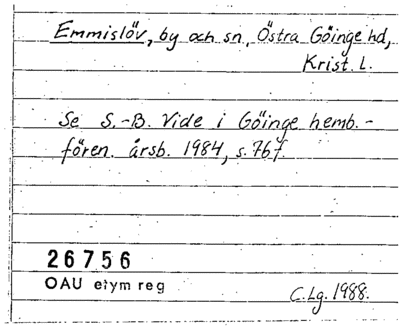 Emmislöv, by och sn, Östra Göinge hd,
Krist. L.
Se S.-B. Vide i Göinge hemb.-
fören. årsb. 1984, s. 76 f.
26756
OAU etym reg
C. Lg. 1988.